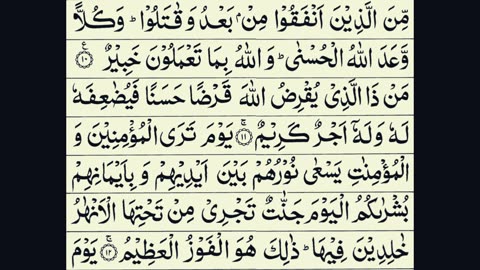 مِّنَ الَّذِيۡنَ اَنۡفَقُوۡا مِنۡۢ بَعۡدُ وَقٰتَلُوۡا‌ ؕ وَكُلًّا
وَّعَدَ اللّٰهُ الۡحُسۡنٰى‌ؕ وَاللّٰهُ بِمَا تَعۡمَلُوۡنَ خَبِيۡرٌ ۱۰ ع
مَنۡ ذَا الَّذِىۡ يُقۡرِضُ اللّٰهَ قَرۡضًا حَسَنًا فَيُضٰعِفَهٗ
لَهٗ وَلَهٗۤ اَجۡرٌ كَرِيۡمٌ ۚ ۱۱ يَوۡمَ تَرَى الۡمُؤۡمِنِيۡنَ وَ
الۡمُؤۡمِنٰتِ يَسۡعٰى نُوۡرُهُمۡ بَيۡنَ اَيۡدِيۡهِمۡ وَبِاَيۡمَانِهِمۡ
بُشۡرٰٮكُمُ الۡيَوۡمَ جَنّٰتٌ تَجۡرِىۡ مِنۡ تَحۡتِهَا الۡاَنۡهٰرُ
خٰلِدِيۡنَ فِيۡهَا‌ؕ ذٰلِكَ هُوَ الۡفَوۡزُ الۡعَظِيۡمُ‌ۚ ۱۲ يَوۡمَ